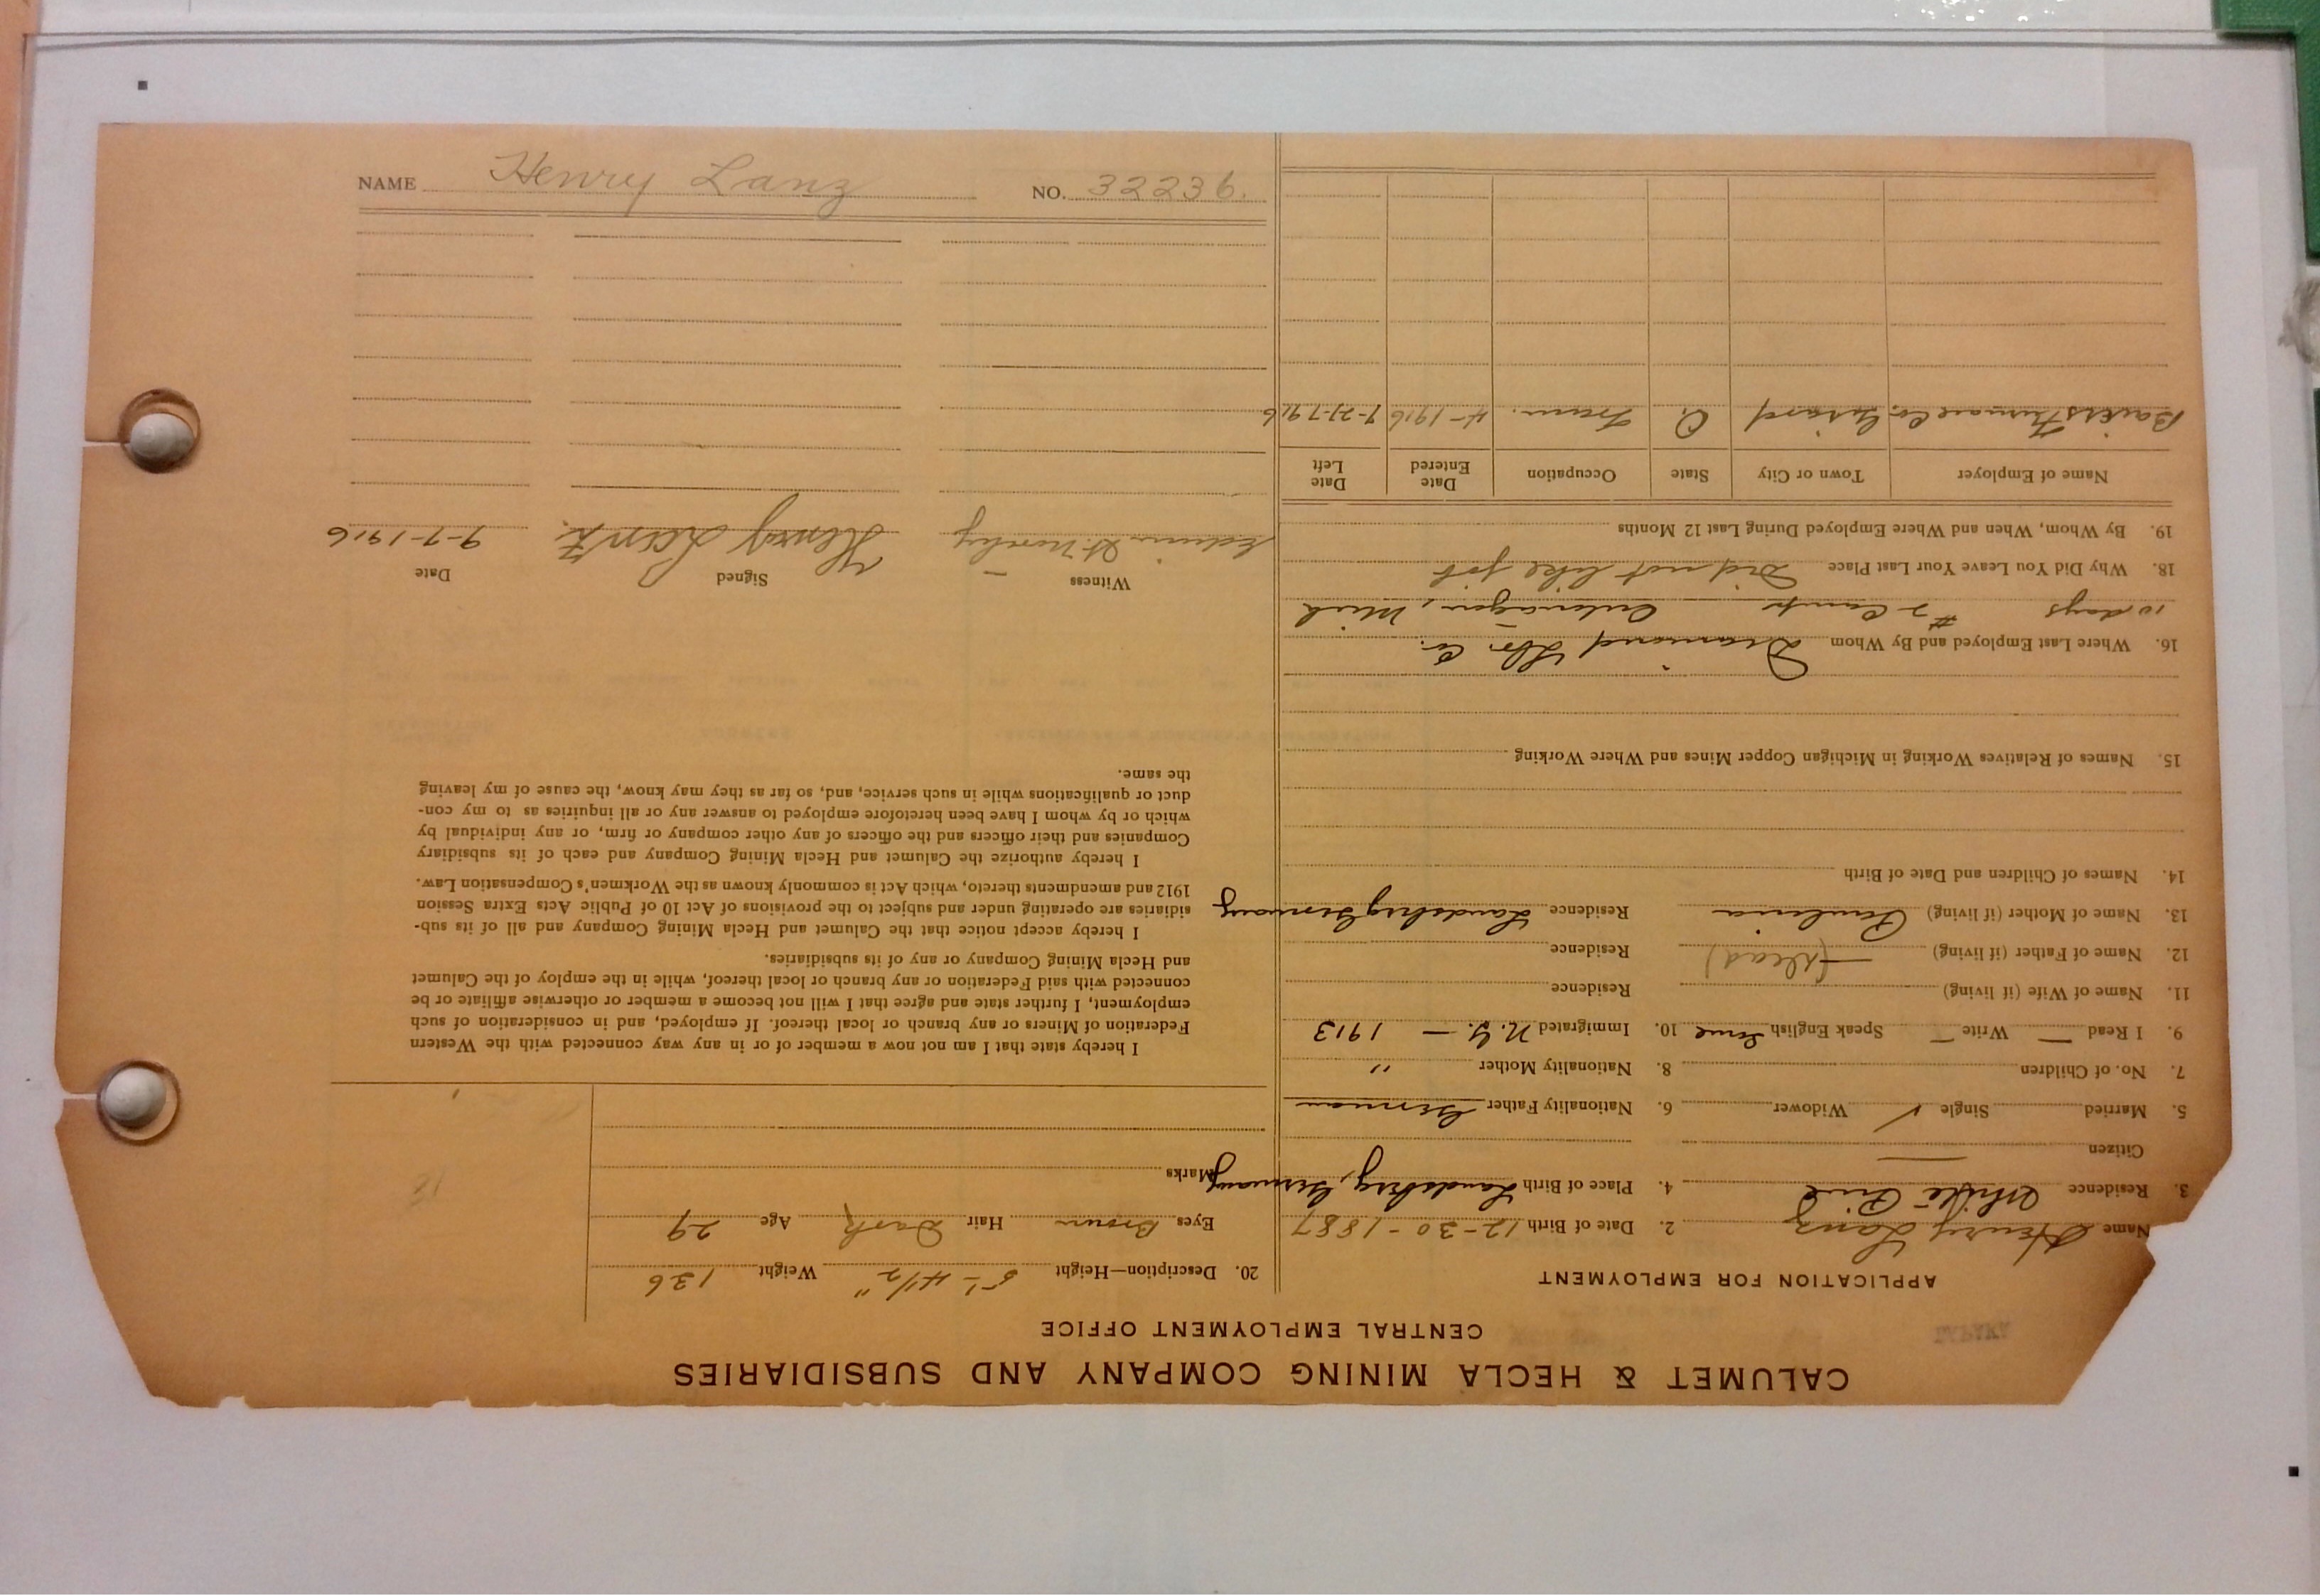 CALUMET & HECLA MINING COMPANY AND SUBSIDIARIES
CENTRAL EMPLOYMENT OFFICE
APPLICATION FOR EMPLOYMENT
Name Henry Lanz 2. Date of Birth 12-30-1887
3. Residence White Pine 4. Place of Birth Landsberg, Germany
Citizen —
5. Married Single ✓ Widower 6. Nationality Father German
7. No. of Children 8. Nationality Mother "
9. I Read — Write — Speak English Some 10. Immigrated N.Y. — 1913
11. Name of Wife (if living) Residence
12. Name of Father (if living) — (dead) Residence
13. Name of Mother (if living) Paulina Residence Landsberg Germany
14. Names of Children and Date of Birth
15. Names of Relatives Working in Michigan Copper Mines and Where Working
16. Where Last Employed and By Whom Diamond Lbr. Co.
10 days #2 Camp Ontonagon, Mich
18. Why Did You Leave Your Last Place Did not like job
19. By Whom, When and Where Employed During Last 12 Months
Name of Employer Town or City State Occupation Date Entered Date Left
Furnace Co. Girard O. 4-1916
20. Description—Height 5'-4½" Weight 136
Eyes Brown Hair Dark Age 29
Marks
I hereby state that I am not now a member of or in any way connected with the Western
Federation of Miners or any branch or local thereof. If employed, and in consideration of such
employment, I further state and agree that I will not become a member or otherwise affiliate or be
connected with said Federation or any branch or local thereof, while in the employ of the Calumet
and Hecla Mining Company or any of its subsidiaries.
I hereby accept notice that the Calumet and Hecla Mining Company and all of its sub-
sidiaries are operating under and subject to the provisions of Act 10 of Public Acts Extra Session
1912 and amendments thereto, which Act is commonly known as the Workmen's Compensation Law.
I hereby authorize the Calumet and Hecla Mining Company and each of its subsidiary
Companies and their officers and the officers of any other company or firm, or any individual by
which or by whom I have been heretofore employed to answer any or all inquiries as to my con-
duct or qualifications while in such service, and, so far as they may know, the cause of my leaving
the same.
Witness Signed Date
Henry Lentz. 9-7-1916
NAME Henry Lanz NO. 32236.